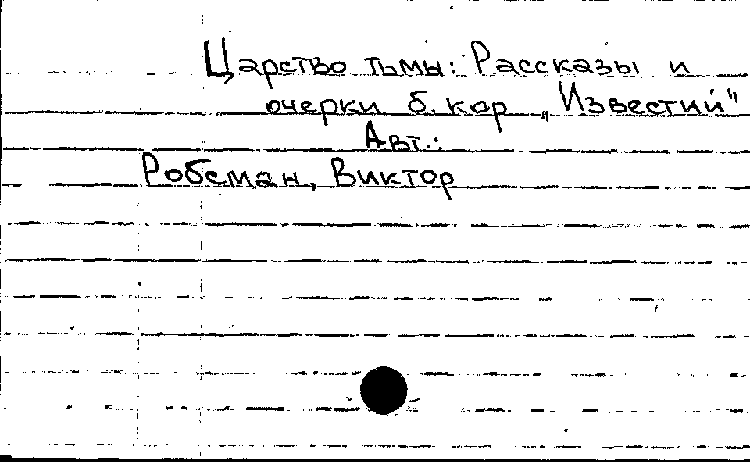 Царство тьмы: Рассказы и
очерки б. кор „Известий"
Авт.:
Робсман, Виктор